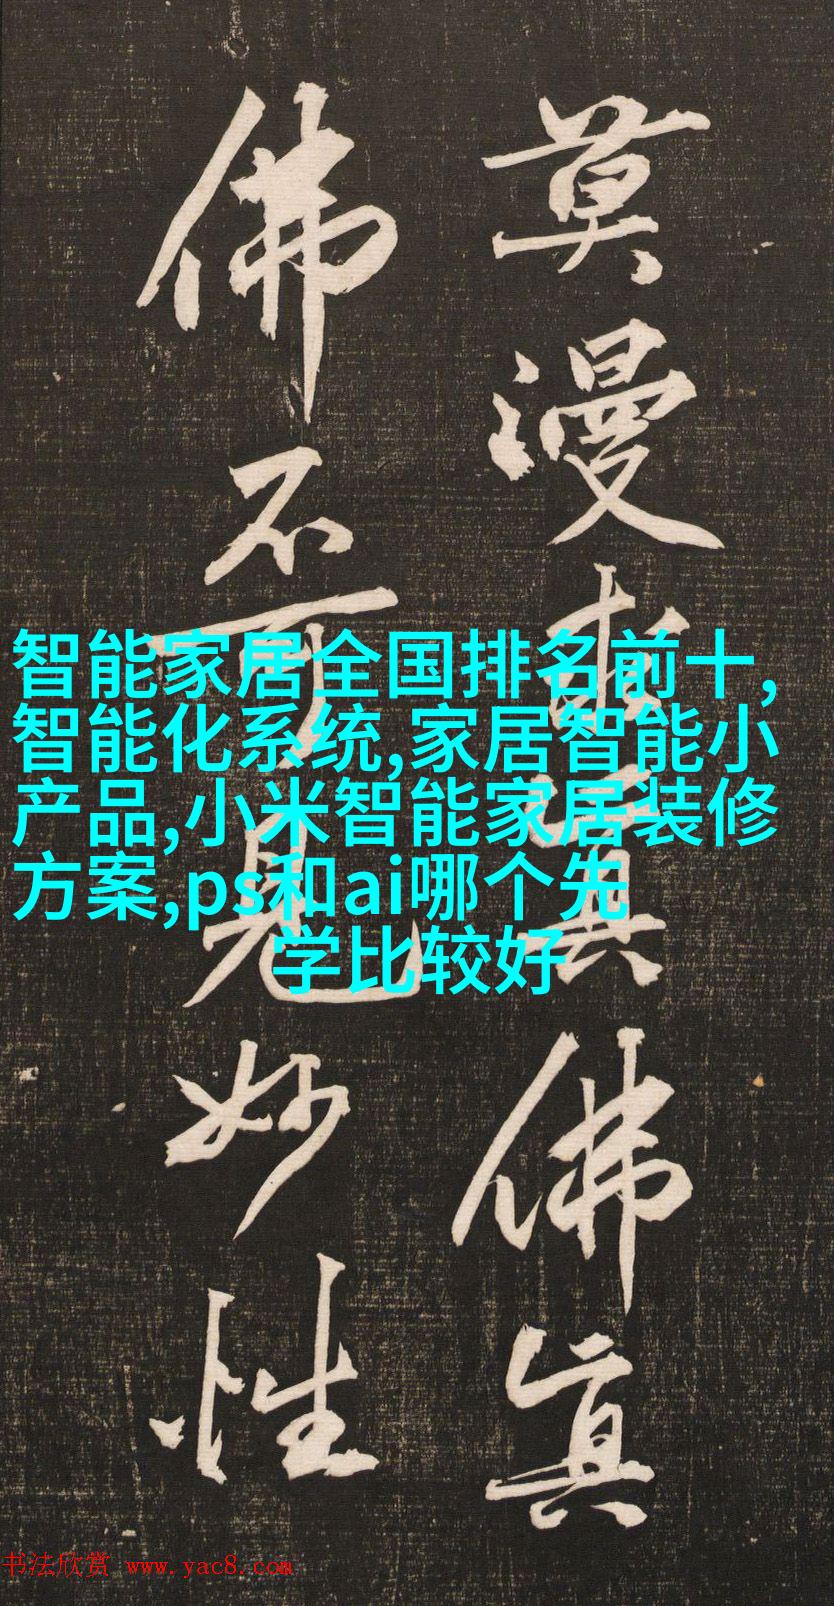 莫漫求真佛真
佛不可見妙性
智能家居全国排名前十,
智能化系统,家居智能小
产品,小米智能家居装修
方案,ps和ai哪个先
学比较好
书法欣赏 www.yac8.com